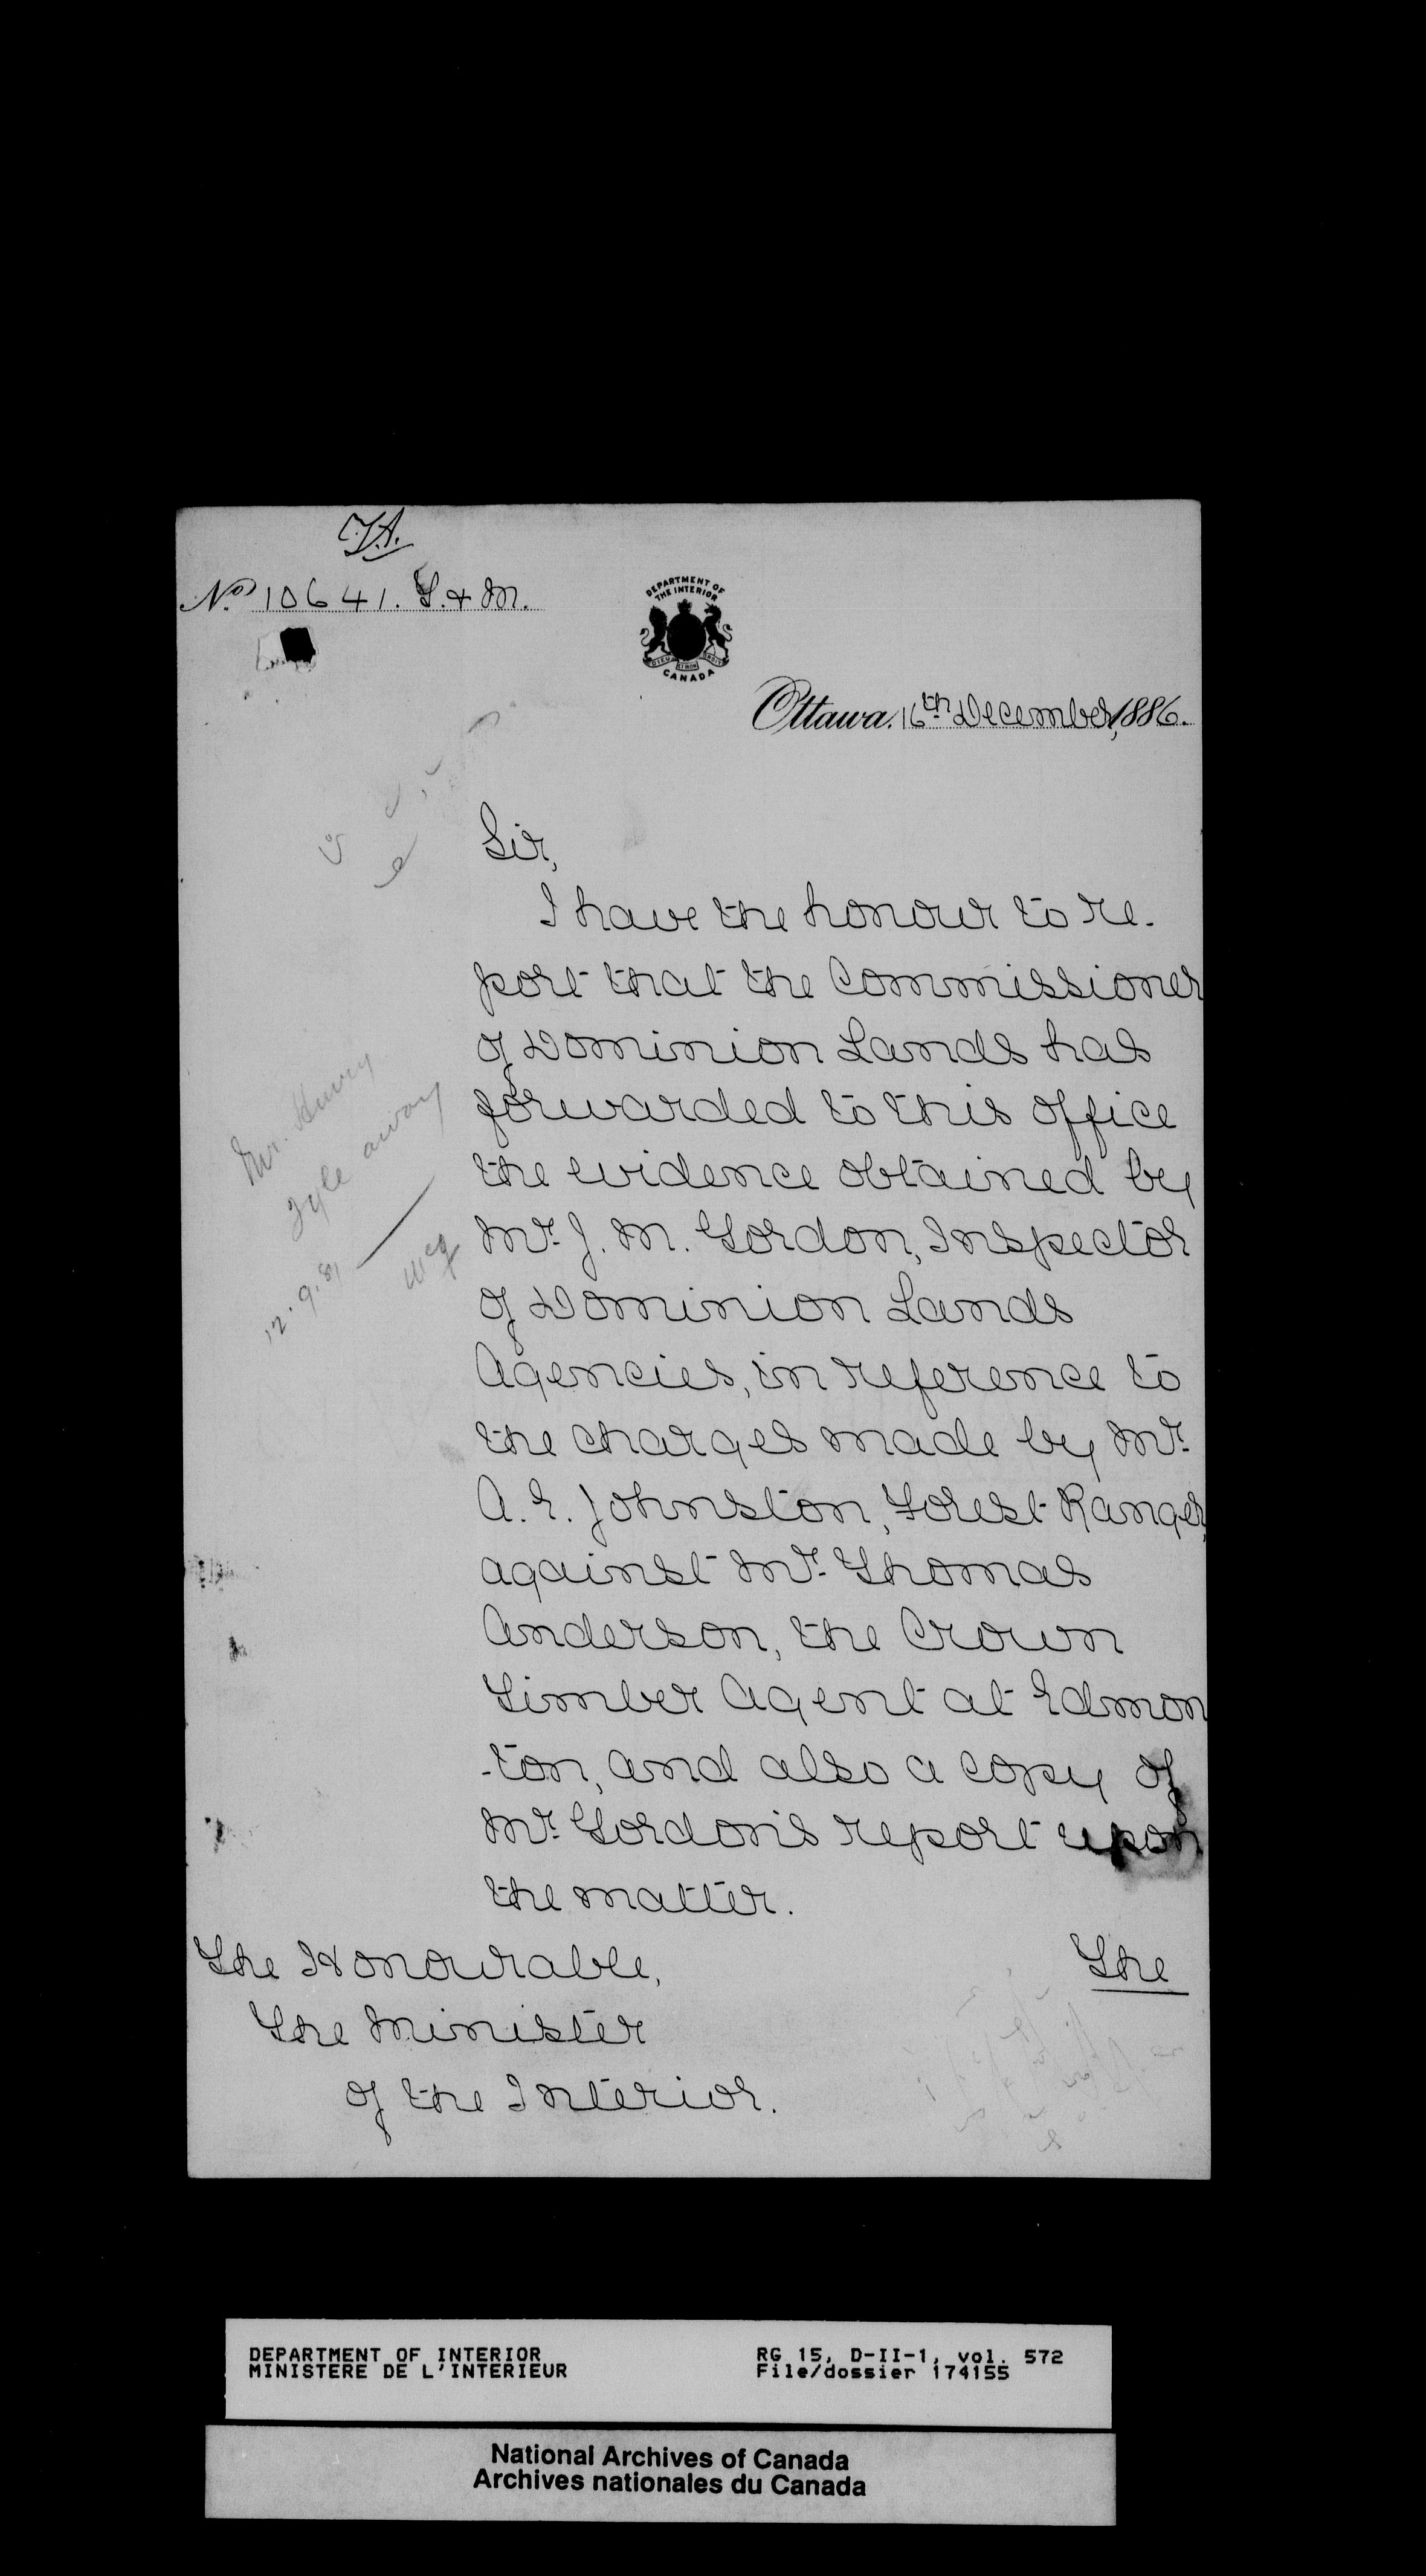 T.A.
No. 10641. T. & M.
DEPARTMENT OF
THE INTERIOR
CANADA
Ottawa, 16th December, 1886.
Sir,
I have the honour to re-
port that the Commissioner
of Dominion Lands has
forwarded to this office
the evidence obtained by
Mr. J. M. Gordon, Inspector
of Dominion Lands
Agencies, in reference to
the charges made by Mr.
A. E. Johnston, Forest Ranger,
against Mr. Thomas
Anderson, the Crown
Timber Agent at Edmon
-ton, and also a copy of
Mr. Gordon's report upon
the matter.
The
The Honourable,
The Minister
of the Interior.
Mr. Henry
Fyle away
DEPARTMENT OF INTERIOR
MINISTERE DE L'INTERIEUR
RG 15, D-II-1, vol. 572
File/dossier 174155
National Archives of Canada
Archives nationales du Canada